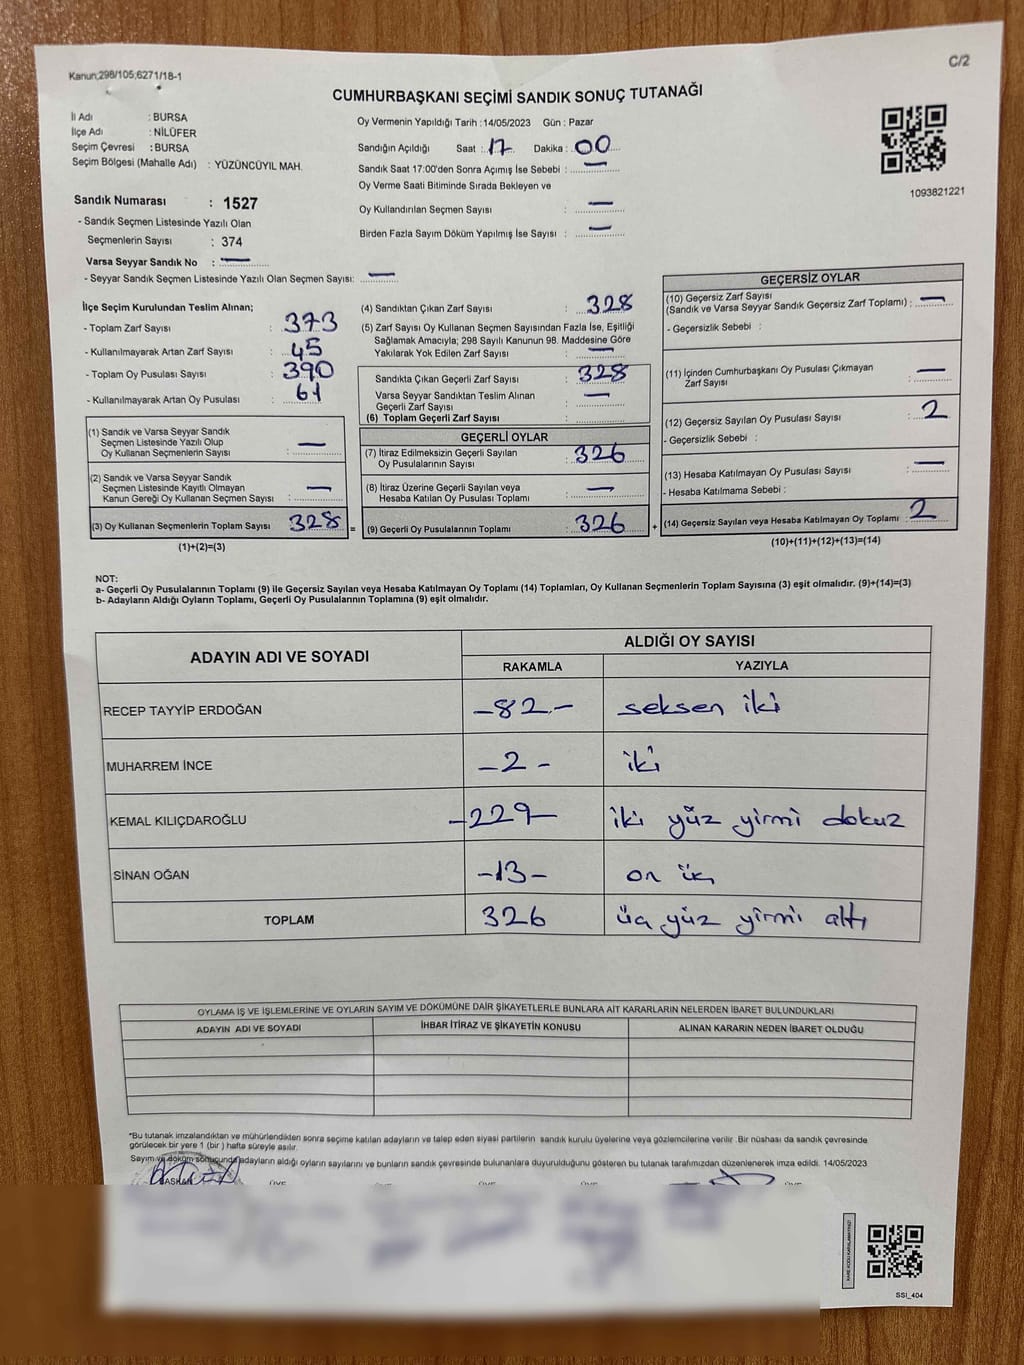 Kanun;298/105;6271/18-1
C/2
CUMHURBAŞKANI SEÇİMİ SANDIK SONUÇ TUTANAĞI
İl Adı : BURSA
İlçe Adı : NİLÜFER
Seçim Çevresi : BURSA
Seçim Bölgesi (Mahalle Adı) : YÜZÜNCÜYIL MAH.
Oy Vermenin Yapıldığı Tarih : 14/05/2023 Gün : Pazar
Sandığın Açıldığı Saat : 17 Dakika : 00
Sandık Saat 17:00'den Sonra Açımış İse Sebebi : —
Oy Verme Saati Bitiminde Sırada Bekleyen ve
Oy Kullandırılan Seçmen Sayısı : —
Birden Fazla Sayım Döküm Yapılmış İse Sayısı : —
1093821221
Sandık Numarası : 1527
- Sandık Seçmen Listesinde Yazılı Olan
Seçmenlerin Sayısı : 374
Varsa Seyyar Sandık No : —
- Seyyar Sandık Seçmen Listesinde Yazılı Olan Seçmen Sayısı: —
İlçe Seçim Kurulundan Teslim Alınan;
- Toplam Zarf Sayısı : 373
- Kullanılmayarak Artan Zarf Sayısı : 45
- Toplam Oy Pusulası Sayısı : 390
- Kullanılmayarak Artan Oy Pusulası : 61
(1) Sandık ve Varsa Seyyar Sandık
Seçmen Listesinde Yazılı Olup
Oy Kullanan Seçmenlerin Sayısı : —
(2) Sandık ve Varsa Seyyar Sandık
Seçmen Listesinde Kayıtlı Olmayan
Kanun Gereği Oy Kullanan Seçmen Sayısı : —
(3) Oy Kullanan Seçmenlerin Toplam Sayısı 328 =
(1)+(2)=(3)
(4) Sandıktan Çıkan Zarf Sayısı : 328
(5) Zarf Sayısı Oy Kullanan Seçmen Sayısından Fazla İse, Eşitliği
Sağlamak Amacıyla; 298 Sayılı Kanunun 98. Maddesine Göre
Yakılarak Yok Edilen Zarf Sayısı : —
Sandıkta Çıkan Geçerli Zarf Sayısı : 328
Varsa Seyyar Sandıktan Teslim Alınan
Geçerli Zarf Sayısı : —
(6) Toplam Geçerli Zarf Sayısı :
GEÇERLİ OYLAR
(7) İtiraz Edilmeksizin Geçerli Sayılan
Oy Pusulalarının Sayısı : 326
(8) İtiraz Üzerine Geçerli Sayılan veya
Hesaba Katılan Oy Pusulası Toplamı : —
(9) Geçerli Oy Pusulalarının Toplamı : 326 +
GEÇERSİZ OYLAR
(10) Geçersiz Zarf Sayısı
(Sandık ve Varsa Seyyar Sandık Geçersiz Zarf Toplamı) : —
- Geçersizlik Sebebi :
(11) İçinden Cumhurbaşkanı Oy Pusulası Çıkmayan
Zarf Sayısı : —
(12) Geçersiz Sayılan Oy Pusulası Sayısı : 2
- Geçersizlik Sebebi :
(13) Hesaba Katılmayan Oy Pusulası Sayısı : —
- Hesaba Katılmama Sebebi :
(14) Geçersiz Sayılan veya Hesaba Katılmayan Oy Toplamı : 2
(10)+(11)+(12)+(13)=(14)
NOT:
a- Geçerli Oy Pusulalarının Toplamı (9) ile Geçersiz Sayılan veya Hesaba Katılmayan Oy Toplamı (14) Toplamları, Oy Kullanan Seçmenlerin Toplam Sayısına (3) eşit olmalıdır. (9)+(14)=(3)
b- Adayların Aldığı Oyların Toplamı, Geçerli Oy Pusulalarının Toplamına (9) eşit olmalıdır.
ADAYIN ADI VE SOYADI
ALDIĞI OY SAYISI
RAKAMLA YAZIYLA
RECEP TAYYİP ERDOĞAN -82- seksen iki
MUHARREM İNCE -2- iki
KEMAL KILIÇDAROĞLU -229- iki yüz yirmi dokuz
SİNAN OĞAN -13- on üç
TOPLAM 326 üç yüz yirmi altı
OYLAMA İŞ VE İŞLEMLERİNE VE OYLARIN SAYIM VE DÖKÜMÜNE DAİR ŞİKAYETLERLE BUNLARA AİT KARARLARIN NELERDEN İBARET BULUNDUKLARI
ADAYIN ADI VE SOYADI İHBAR İTİRAZ VE ŞİKAYETİN KONUSU ALINAN KARARIN NEDEN İBARET OLDUĞU
*Bu tutanak imzalandıktan ve mühürlendikten sonra seçime katılan adayların ve talep eden siyasi partilerin sandık kurulu üyelerine veya gözlemcilerine verilir. Bir nüshası da sandık çevresinde
görülecek bir yere 1 (bir ) hafta süreyle asılır.
Sayım ve döküm sonucunda adayların aldığı oyların sayılarını ve bunların sandık çevresinde bulunanlara duyurulduğunu gösteren bu tutanak tarafımızdan düzenlenerek imza edildi. 14/05/2023
BAŞKAN ÜYE ÜYE ÜYE ÜYE ÜYE
SSI_404